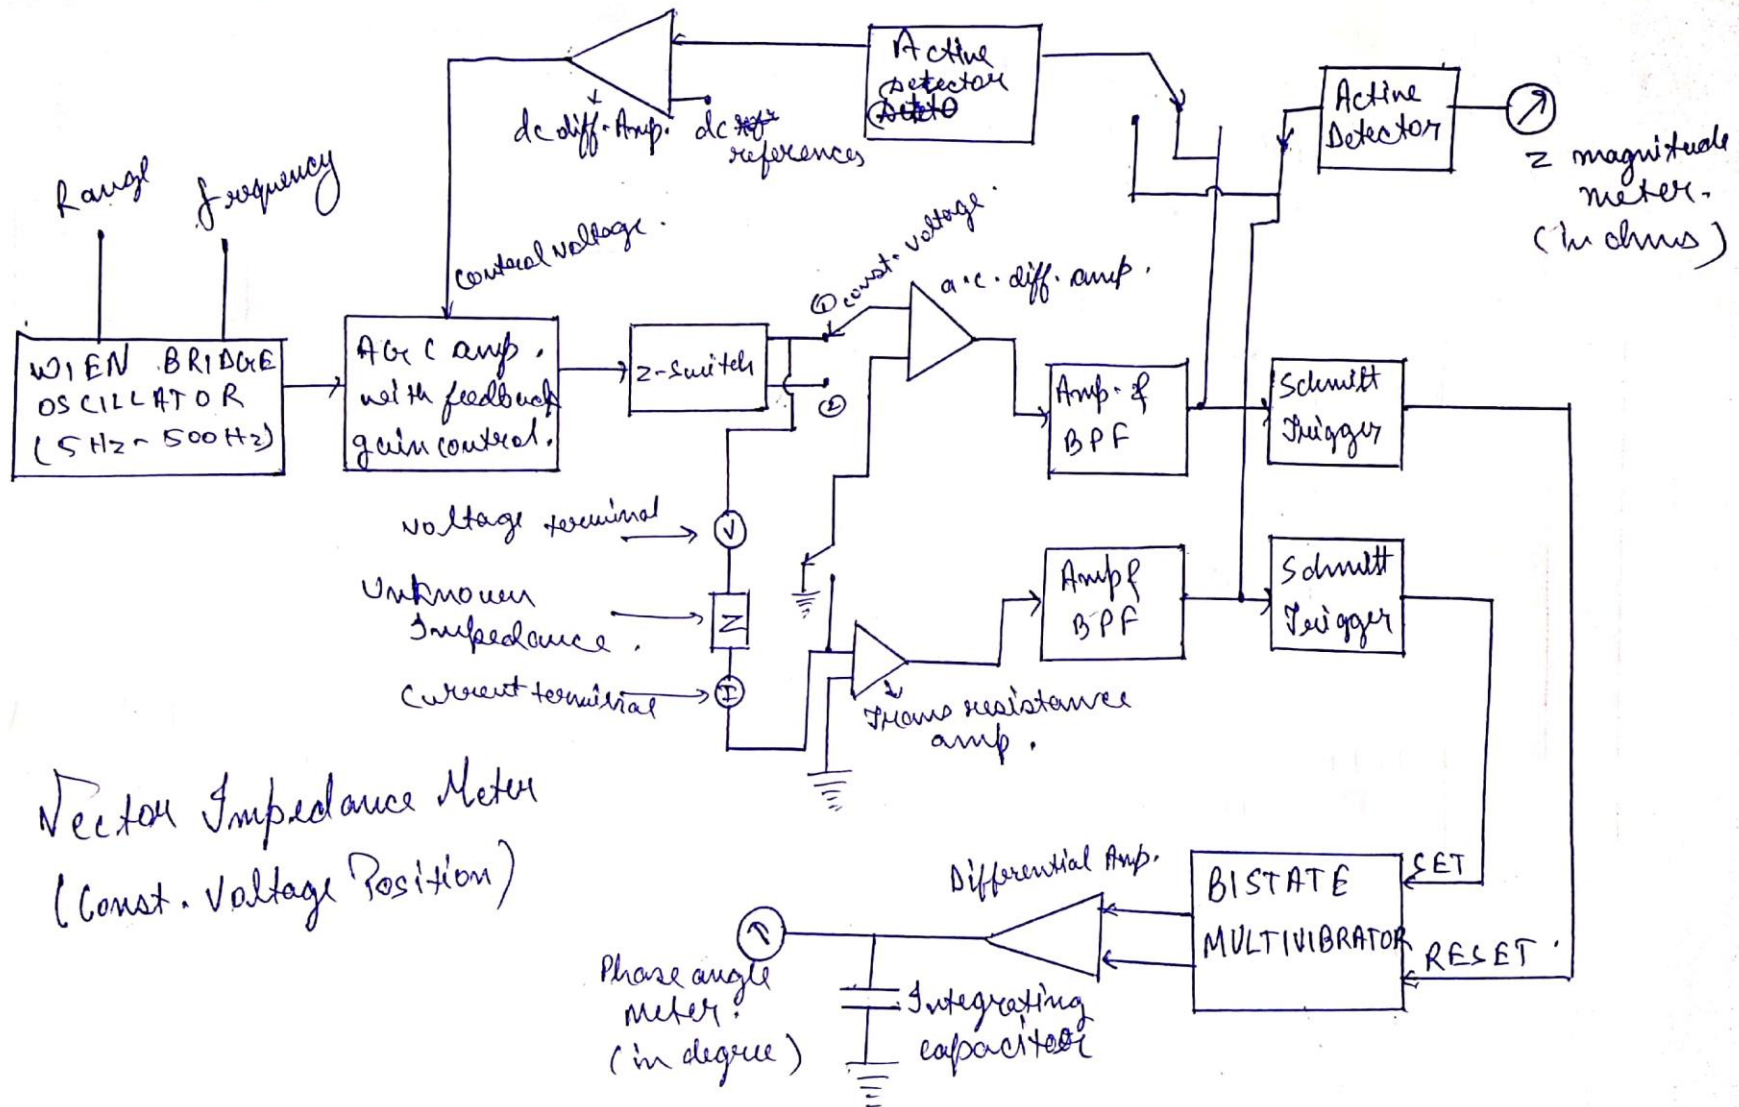 Active
Detector
dc diff. Amp.
dc
references
Active
Detector
Z magnitude
meter.
(in ohms)
Range
frequency
control voltage.
① const. voltage.
a.c. diff. amp.
WIEN BRIDGE
OSCILLATOR
(5 Hz - 500 Hz)
AGC amp.
with feedback
gain control.
Z-Switch
②
Amp. &
BPF
Schmitt
Trigger
Voltage terminal
V
Unknown
Impedance.
Z
Current terminal
I
Amp &
BPF
Schmitt
Trigger
Trans resistance
amp.
Vector Impedance Meter
(Const. Voltage Position)
Differential Amp.
BISTATE
MULTIVIBRATOR
SET
RESET
Phase angle
meter.
(in degree)
Integrating
capacitor